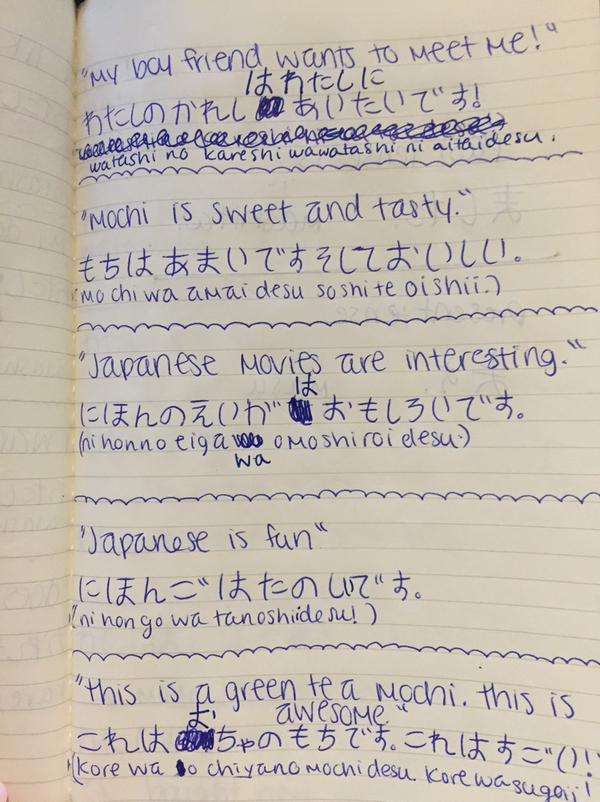 "My boy friend wants to meet me!"
はわたしに
わたしのかれし あいたいです!
watashi no kareshi wawatashi ni aitaidesu.
"Mochi is sweet and tasty."
もちは あまいですそしておいしい。
(mochi wa amai desu soshite oishii.)
"Japanese movies are interesting."
は
にほんのえいが おもしろいです。
(nihonno eiga omoshiroi desu.)
wa
"Japanese is fun"
にほんごはたのしいです。
(nihongo wa tanoshiidesu!)
"this is a green tea mochi. this is
お awesome"
これは ちゃのもちです。これはすごい!
(kore wa o chiyano mochi desu. kore wa sugoii!